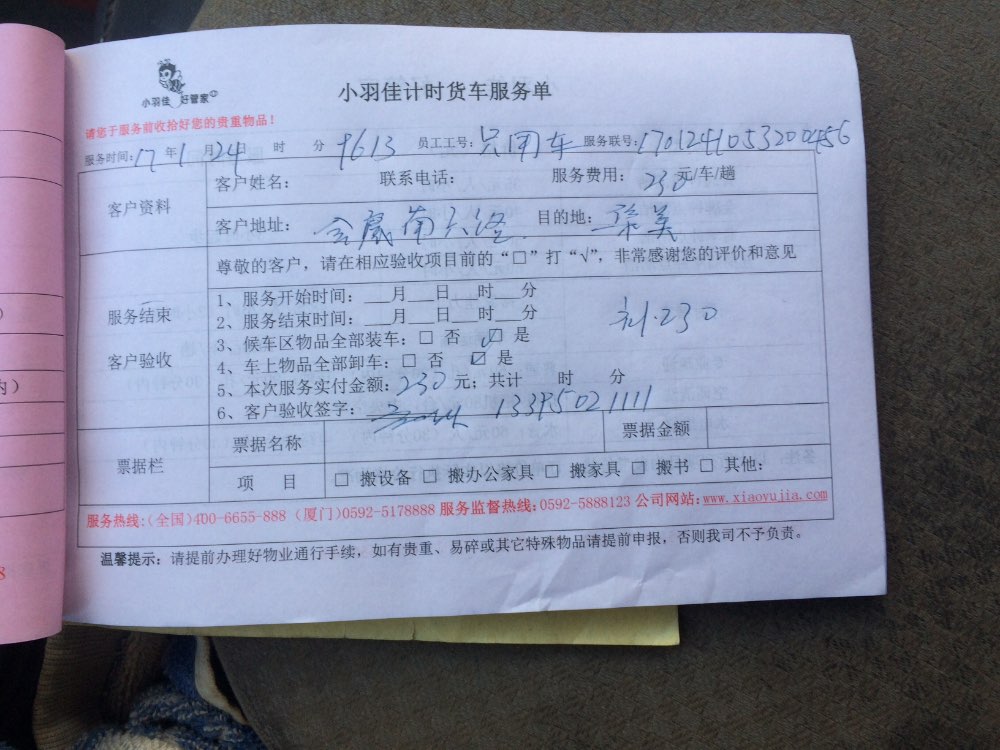 小羽佳 好管家
小羽佳计时货车服务单
请您于服务前收拾好您的贵重物品！
服务时间：17年1月24日 时 分 9613 员工工号：只用车 服务联号：1701241053200456
客户资料
客户姓名： 联系电话： 服务费用：230元/车/趟
客户地址： 目的地：集美
服务结束
客户验收
尊敬的客户，请在相应验收项目前的“□”打“√”，非常感谢您的评价和意见
1、服务开始时间：___月___日___时___分
2、服务结束时间：___月___日___时___分
3、候车区物品全部装车：□ 否 ☑ 是
4、车上物品全部卸车：□ 否 ☑ 是
5、本次服务实付金额：230元；共计 时 分
6、客户验收签字： 13395021111
230
票据栏
票据名称 票据金额
项 目 □ 搬设备 □ 搬办公家具 □ 搬家具 □ 搬书 □ 其他：
服务热线:(全国)400-6655-888 (厦门)0592-5178888 服务监督热线:0592-5888123 公司网站:www.xiaoyujia.com
温馨提示：请提前办理好物业通行手续，如有贵重、易碎或其它特殊物品请提前申报，否则我司不予负责。
内）
8